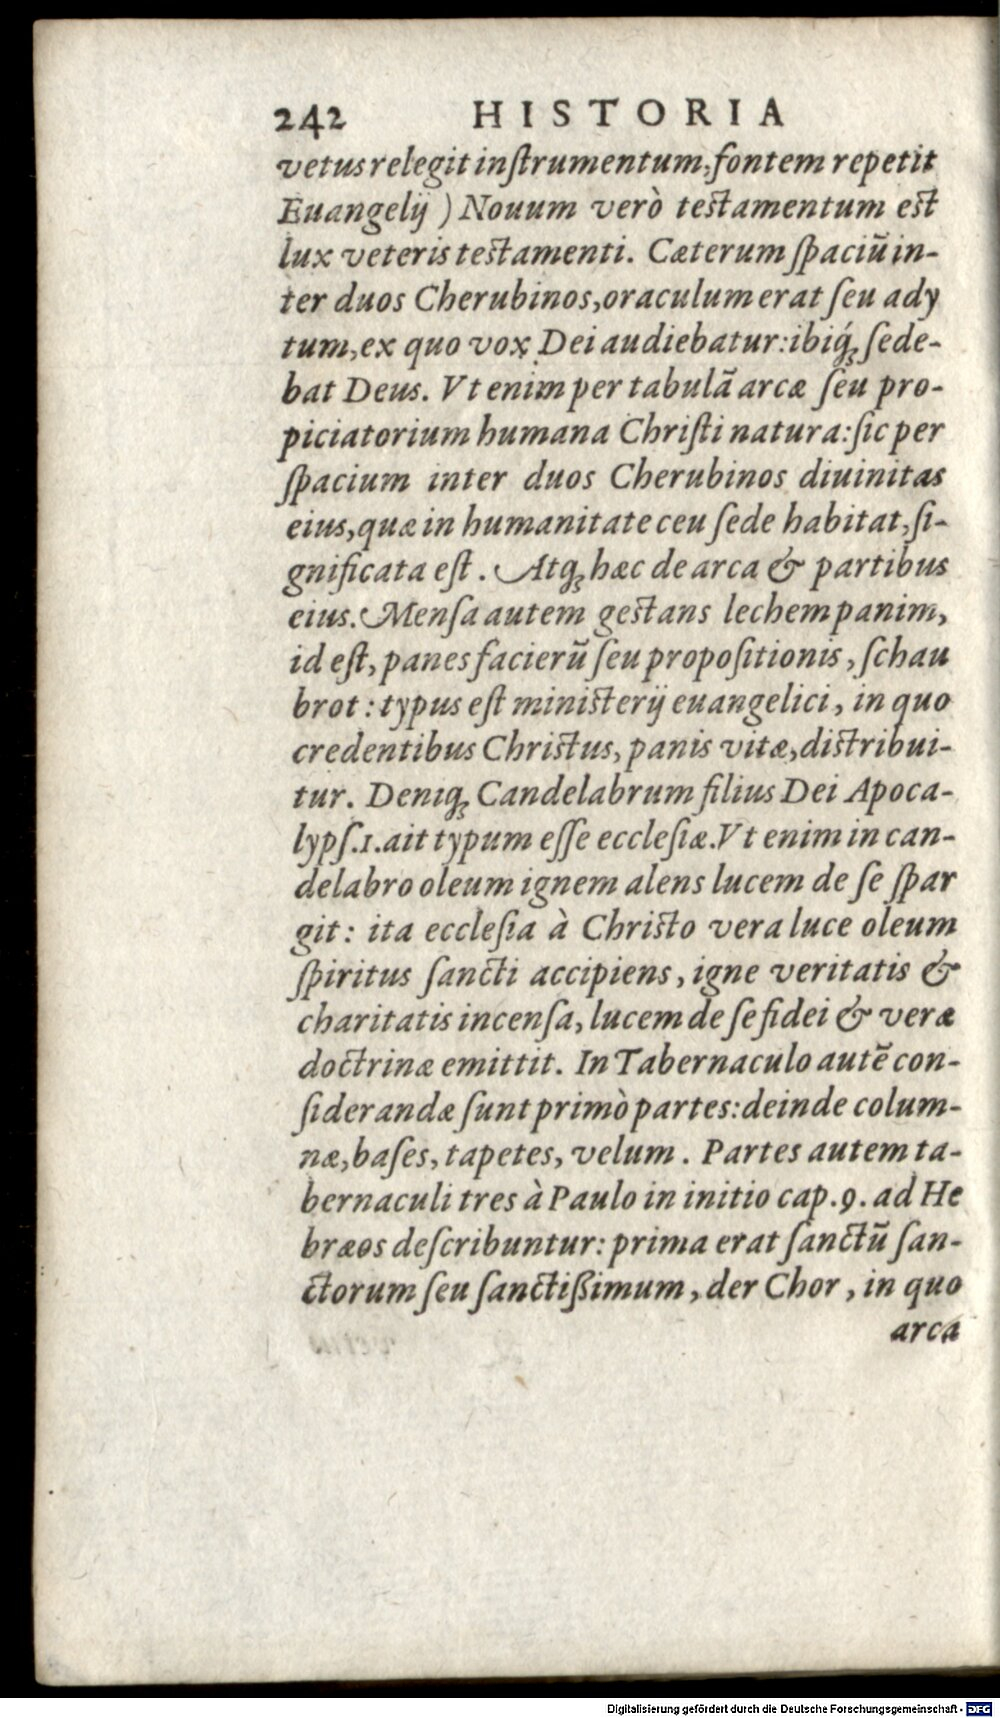 242 HISTORIA
vetus relegit inſtrumentum, fontem repetit
Euangelij ) Nouum verò teſtamentum eſt
lux veteris teſtamenti. Cæterum ſpaciũ in-
ter duos Cherubinos, oraculum erat ſeu ady
tum, ex quo vox Dei audiebatur: ibiq́ꝫ ſede-
bat Deus. Vt enim per tabulã arcæ ſeu pro-
piciatorium humana Chriſti natura: ſic per
ſpacium inter duos Cherubinos diuinitas
eius, quæ in humanitate ceu ſede habitat, ſi-
gnificata eſt. Atqꝫ hæc de arca & partibus
eius. Menſa autem geſtans lechem panim,
id eſt, panes facierũ ſeu propoſitionis, ſchau
brot: typus eſt miniſterij euangelici, in quo
credentibus Chriſtus, panis vitæ, diſtribui-
tur. Deniqꝫ Candelabrum filius Dei Apoca-
lypſ. 1. ait typum eſſe eccleſiæ. Vt enim in can-
delabro oleum ignem alens lucem de ſe ſpar
git: ita eccleſia à Chriſto vera luce oleum
ſpiritus ſancti accipiens, igne veritatis &
charitatis incenſa, lucem de ſe fidei & veræ
doctrinæ emittit. In Tabernaculo autẽ con-
ſiderandæ ſunt primò partes: deinde colum-
næ, baſes, tapetes, velum. Partes autem ta-
bernaculi tres à Paulo in initio cap. 9. ad He
bræos deſcribuntur: prima erat ſanctũ ſan-
ctorum ſeu ſanctißimum, der Chor, in quo
arca
Digitalisierung gefördert durch die Deutsche Forschungsgemeinschaft - DFG